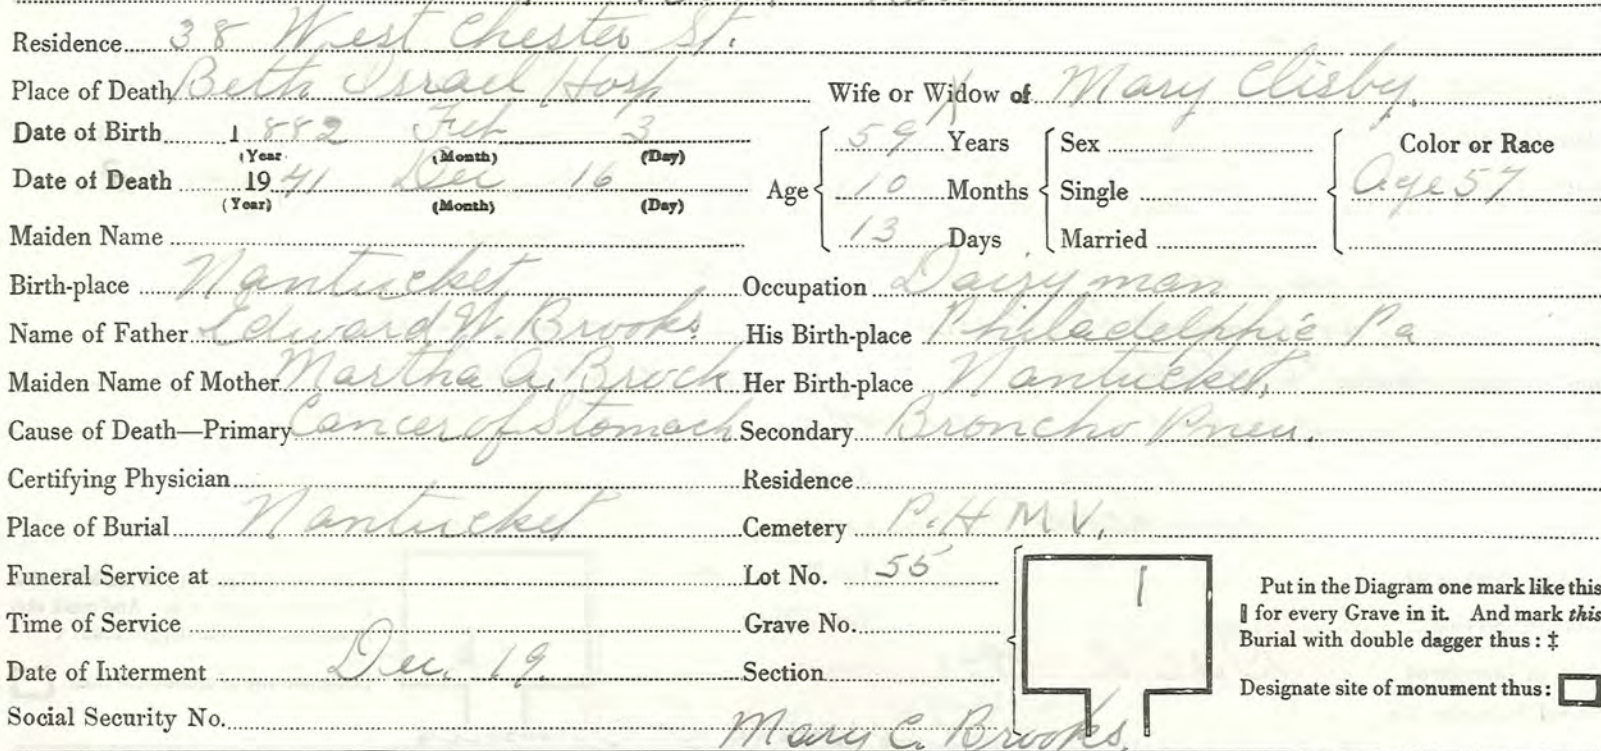 Residence 38 West Chester St.
Place of Death Beth Israel Hosp Wife or Widow of Mary Clisby.
Date of Birth 1882 Feb 3
(Year (Month) (Day)
Date of Death 1941 Dec 16
(Year) (Month) (Day)
Age 59 Years
10 Months
13 Days
Sex
Single
Married
Color or Race
Age 57
Maiden Name
Birth-place Nantucket Occupation Dairyman
Name of Father Edward W. Brooks. His Birth-place Philadelphie Pa
Maiden Name of Mother Martha A. Brock Her Birth-place Nantucket.
Cause of Death—Primary Cancer of Stomach Secondary Broncho Pneu.
Certifying Physician Residence
Place of Burial Nantucket Cemetery P.H M.V.
Funeral Service at Lot No. 55
Time of Service Grave No.
Date of Interment Dec. 19. Section
Social Security No. Mary C. Brooks.
Put in the Diagram one mark like this
for every Grave in it. And mark this
Burial with double dagger thus: ‡
Designate site of monument thus: